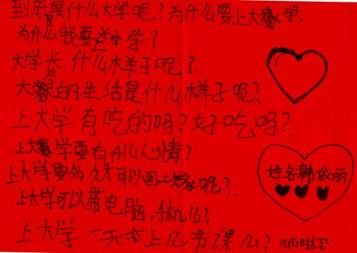 到底是什么大学呢?为什么要上大学
为什么我要上小学?
大学长什么样子呢?
大家的生活是什么样子呢?
上大学有吃的吗?好吃吗?
上大学要有什么心情?
上大学要多久才可以回一次家呢?
上大学可以带电脑,手机么?
上大学一天要上几节课么?
姓名韩欣丽